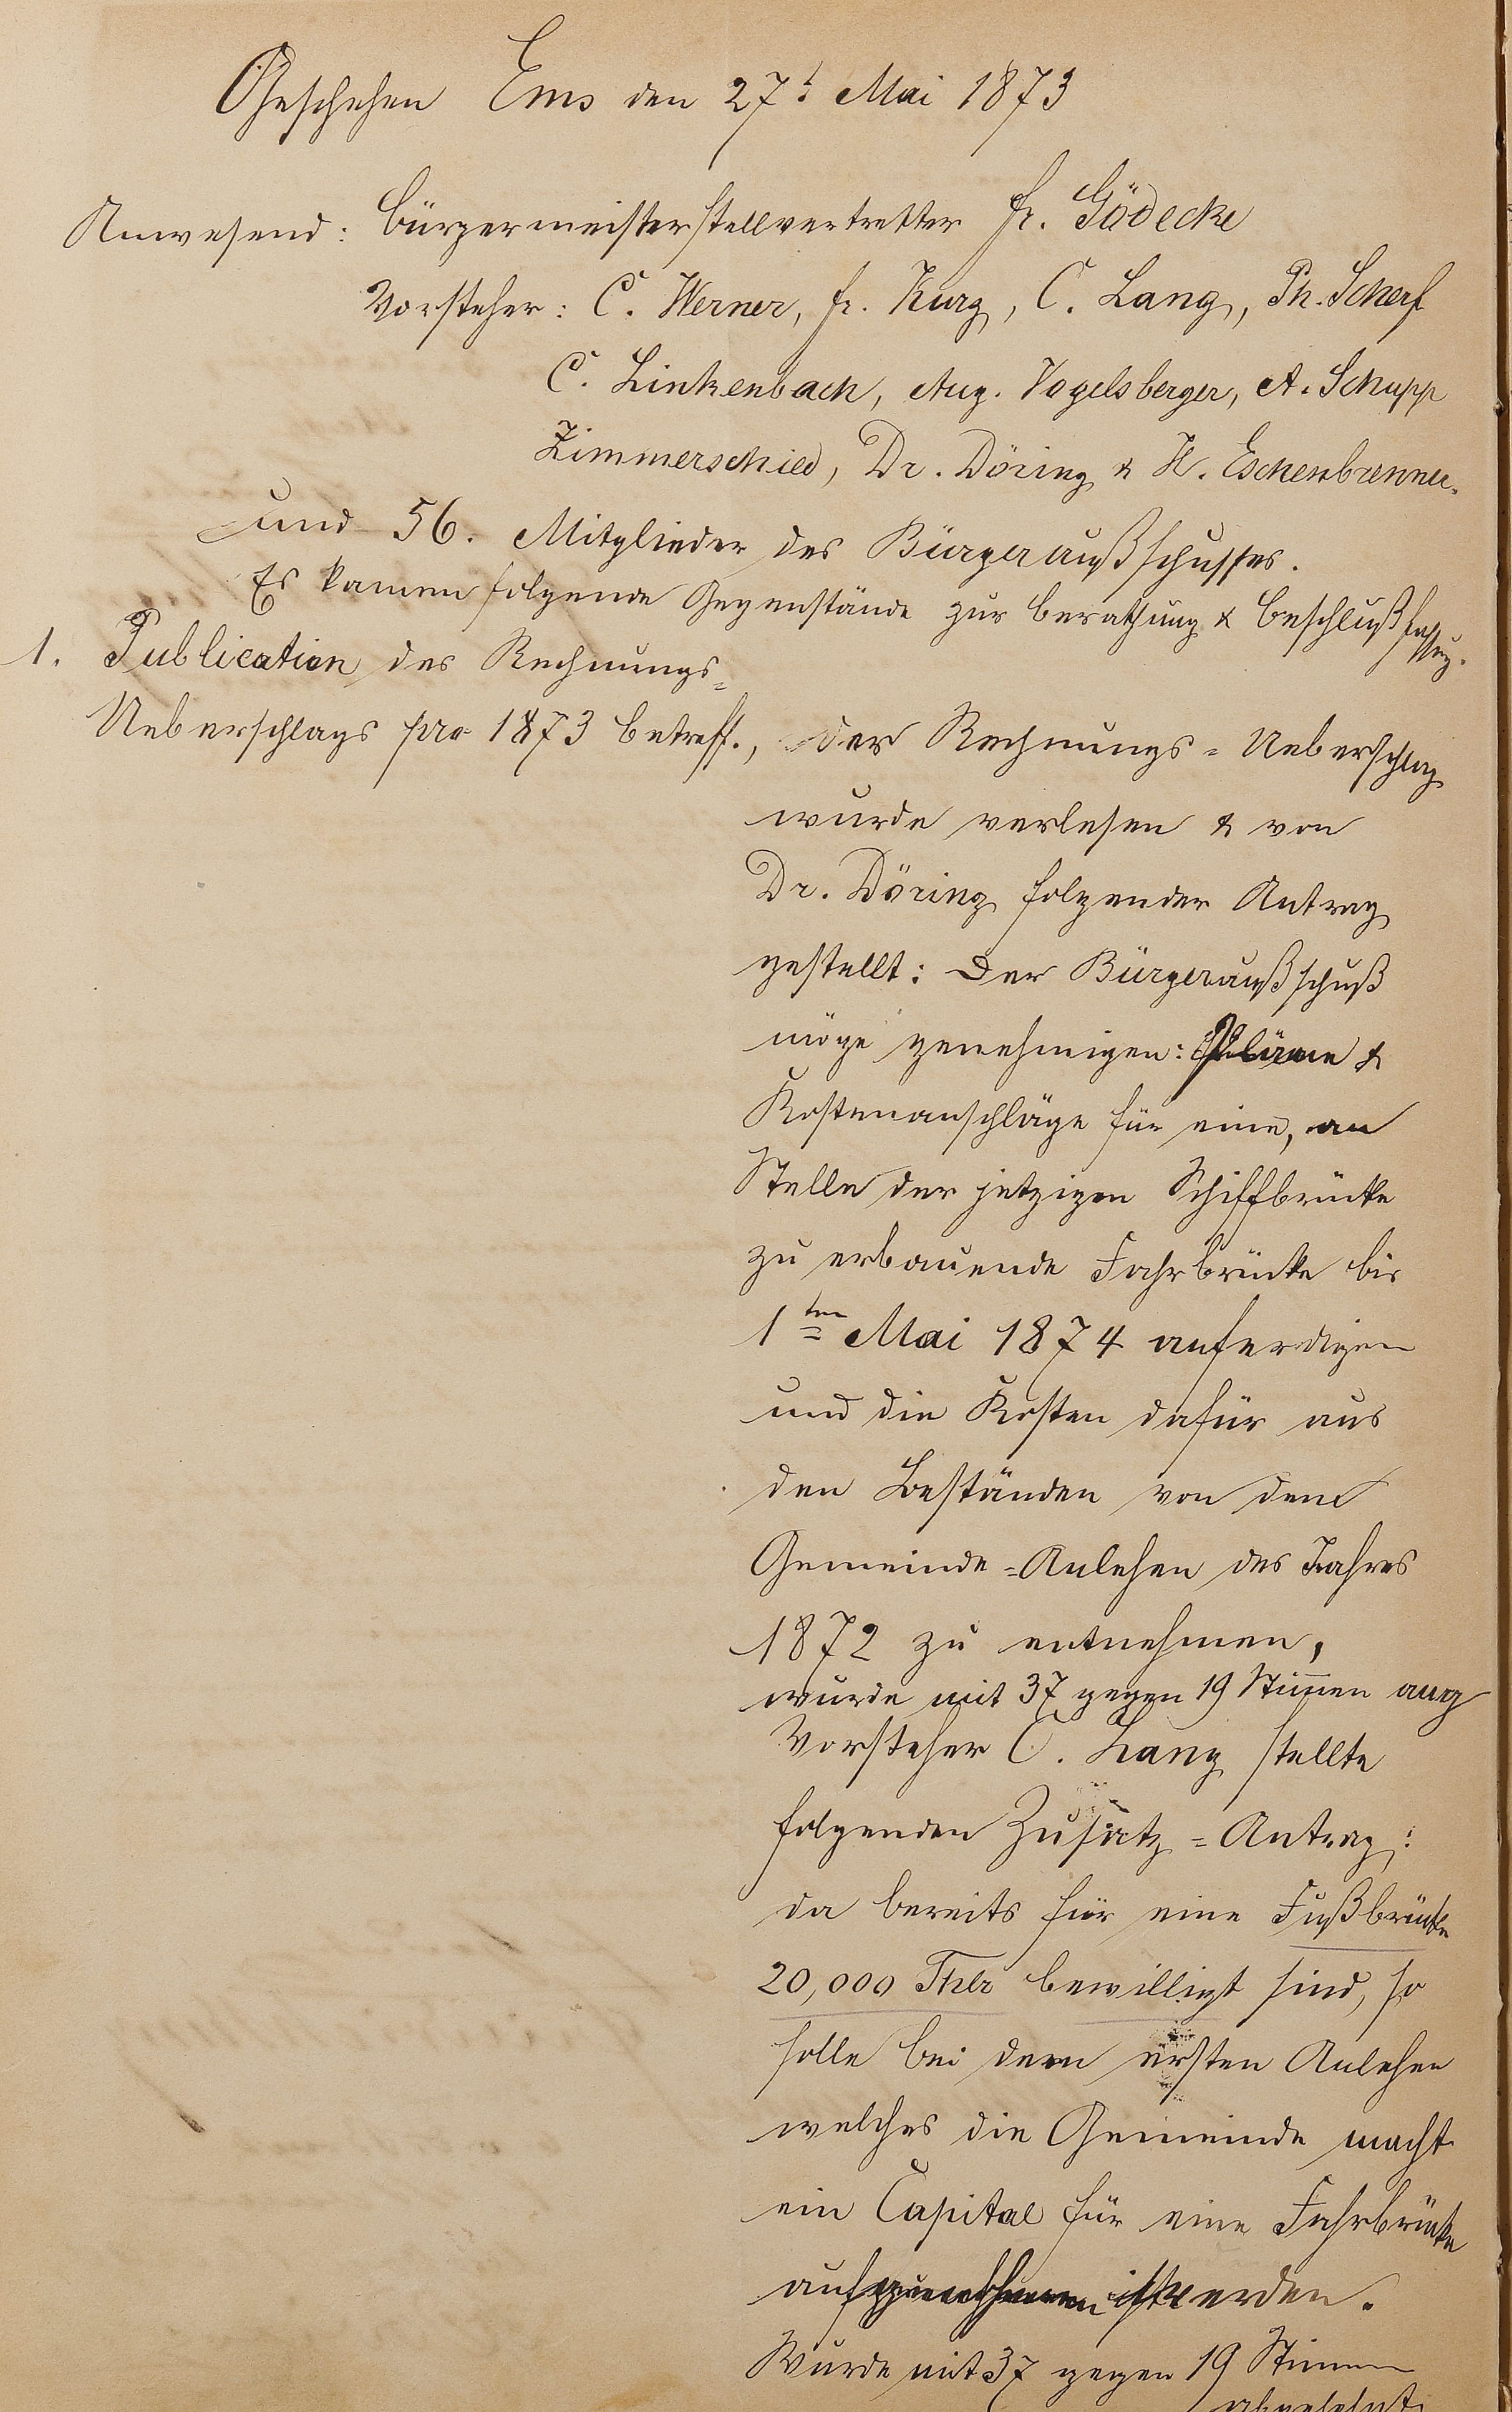 Geschehen Ems den 27t Mai 1873
Anwesend: Bürgermeisterstellvertretter Fr. Gödecke
Vorsteher: C. Werner, Fr. Kurz, C. Lang, Ph. Scherf
C. Linkenbach, Aug. Vogelsberger, A. Schupp
Zimmerschied, Dr. Döring & H. Eschenbrenner.
und 56. Mitglieder des Bürgeraußschusses.
Es kamen folgende Gegenstände zur Berathung & Beschlußfassung.
1. Publication des Rechnungs=
Ueberschlags pro 1873 betreff., Der Rechnungs=Ueberschlag
wurde verlesen & von
Dr. Döring folgender Antrag
gestellt: Der Bürgeraußschuß
möge genehmigen: Pläne &
Kostenanschläge für eine, an
Stelle der jetzigen Schiffbrücke
zu erbauende Fahrbrücke bis
1ten Mai 1874 anferdigen
und die Kosten dafür aus
den Beständen von dem
Gemeinde=Anlehen des Jahres
1872 zu entnehmen,
wurde mit 37 gegen 19 Stimmen ang
Vorsteher C. Lang stellte
folgenden Zusatz=Antrag:
da bereits für eine Fußbrücke
20,000 Thlr bewilligt sind, so
solle bei dem ersten Anlehen
welches die Gemeinde macht
ein Capital für eine Fahrbrücke
werden.
Wurde mit 37 gegen 19 Stimmen
abgelehnt.